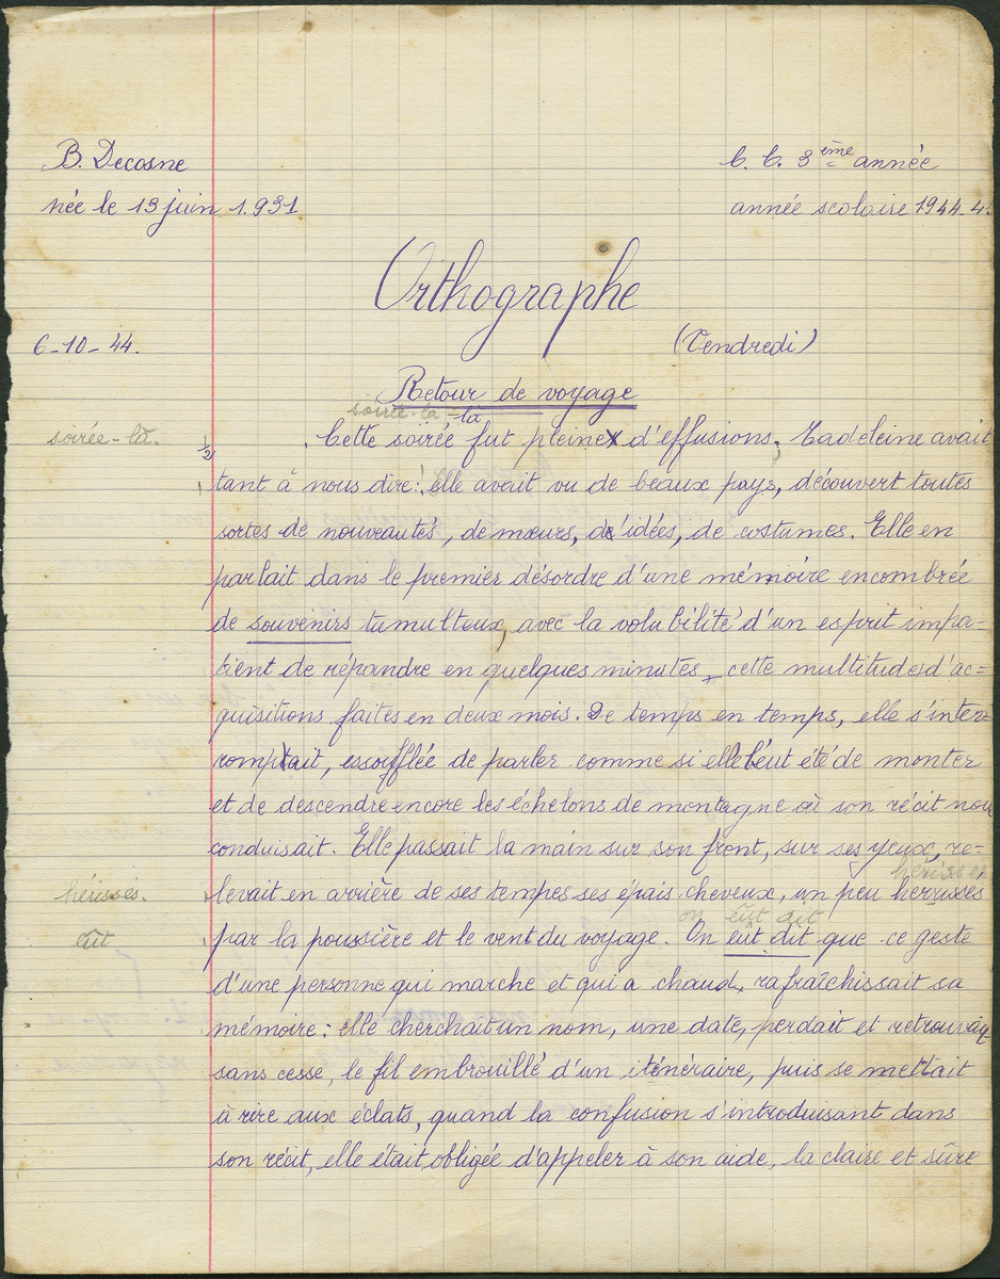 B. Decosne
C. C. 3ème année
née le 13 juin 1.931
année scolaire 1944-4
Orthographe
6-10-44.
(Vendredi)
Retour de voyage
soirée-là
soirée-là.
-là
½
Cette soirée fut pleine d'effusions; Madeleine avait
tant à nous dire: elle avait vu de beaux pays, découvert toutes
sortes de nouveautés, de mœurs, d'idées, de costumes. Elle en
parlait dans le premier désordre d'une mémoire encombrée
de souvenirs tumulteux, avec la volubilité d'un esprit impa-
tient de répandre en quelques minutes cette multitude d'ac=
quisitions faites en deux mois. De temps en temps, elle s'inter=
rompait, essoufflée de parler comme si elle l'eut été de monter
et de descendre encore les échelons de montagne où son récit nou
conduisait. Elle passait la main sur son front, sur ses yeux, re=
hérissés
hérissés.
levait en arrière de ses tempes ses épais cheveux, un peu herrissés
on eût dit
eût
par la poussière et le vent du voyage. On eut dit que ce geste
d'une personne qui marche et qui a chaud, rafraîchissait sa
mémoire: elle cherchait un nom, une date, perdait et retrouvait
sans cesse, le fil embrouillé d'un iténéraire, puis se mettait
à rire aux éclats, quand la confusion s'introduisant dans
son récit, elle était obligée d'appeler à son aide, la claire et sûre